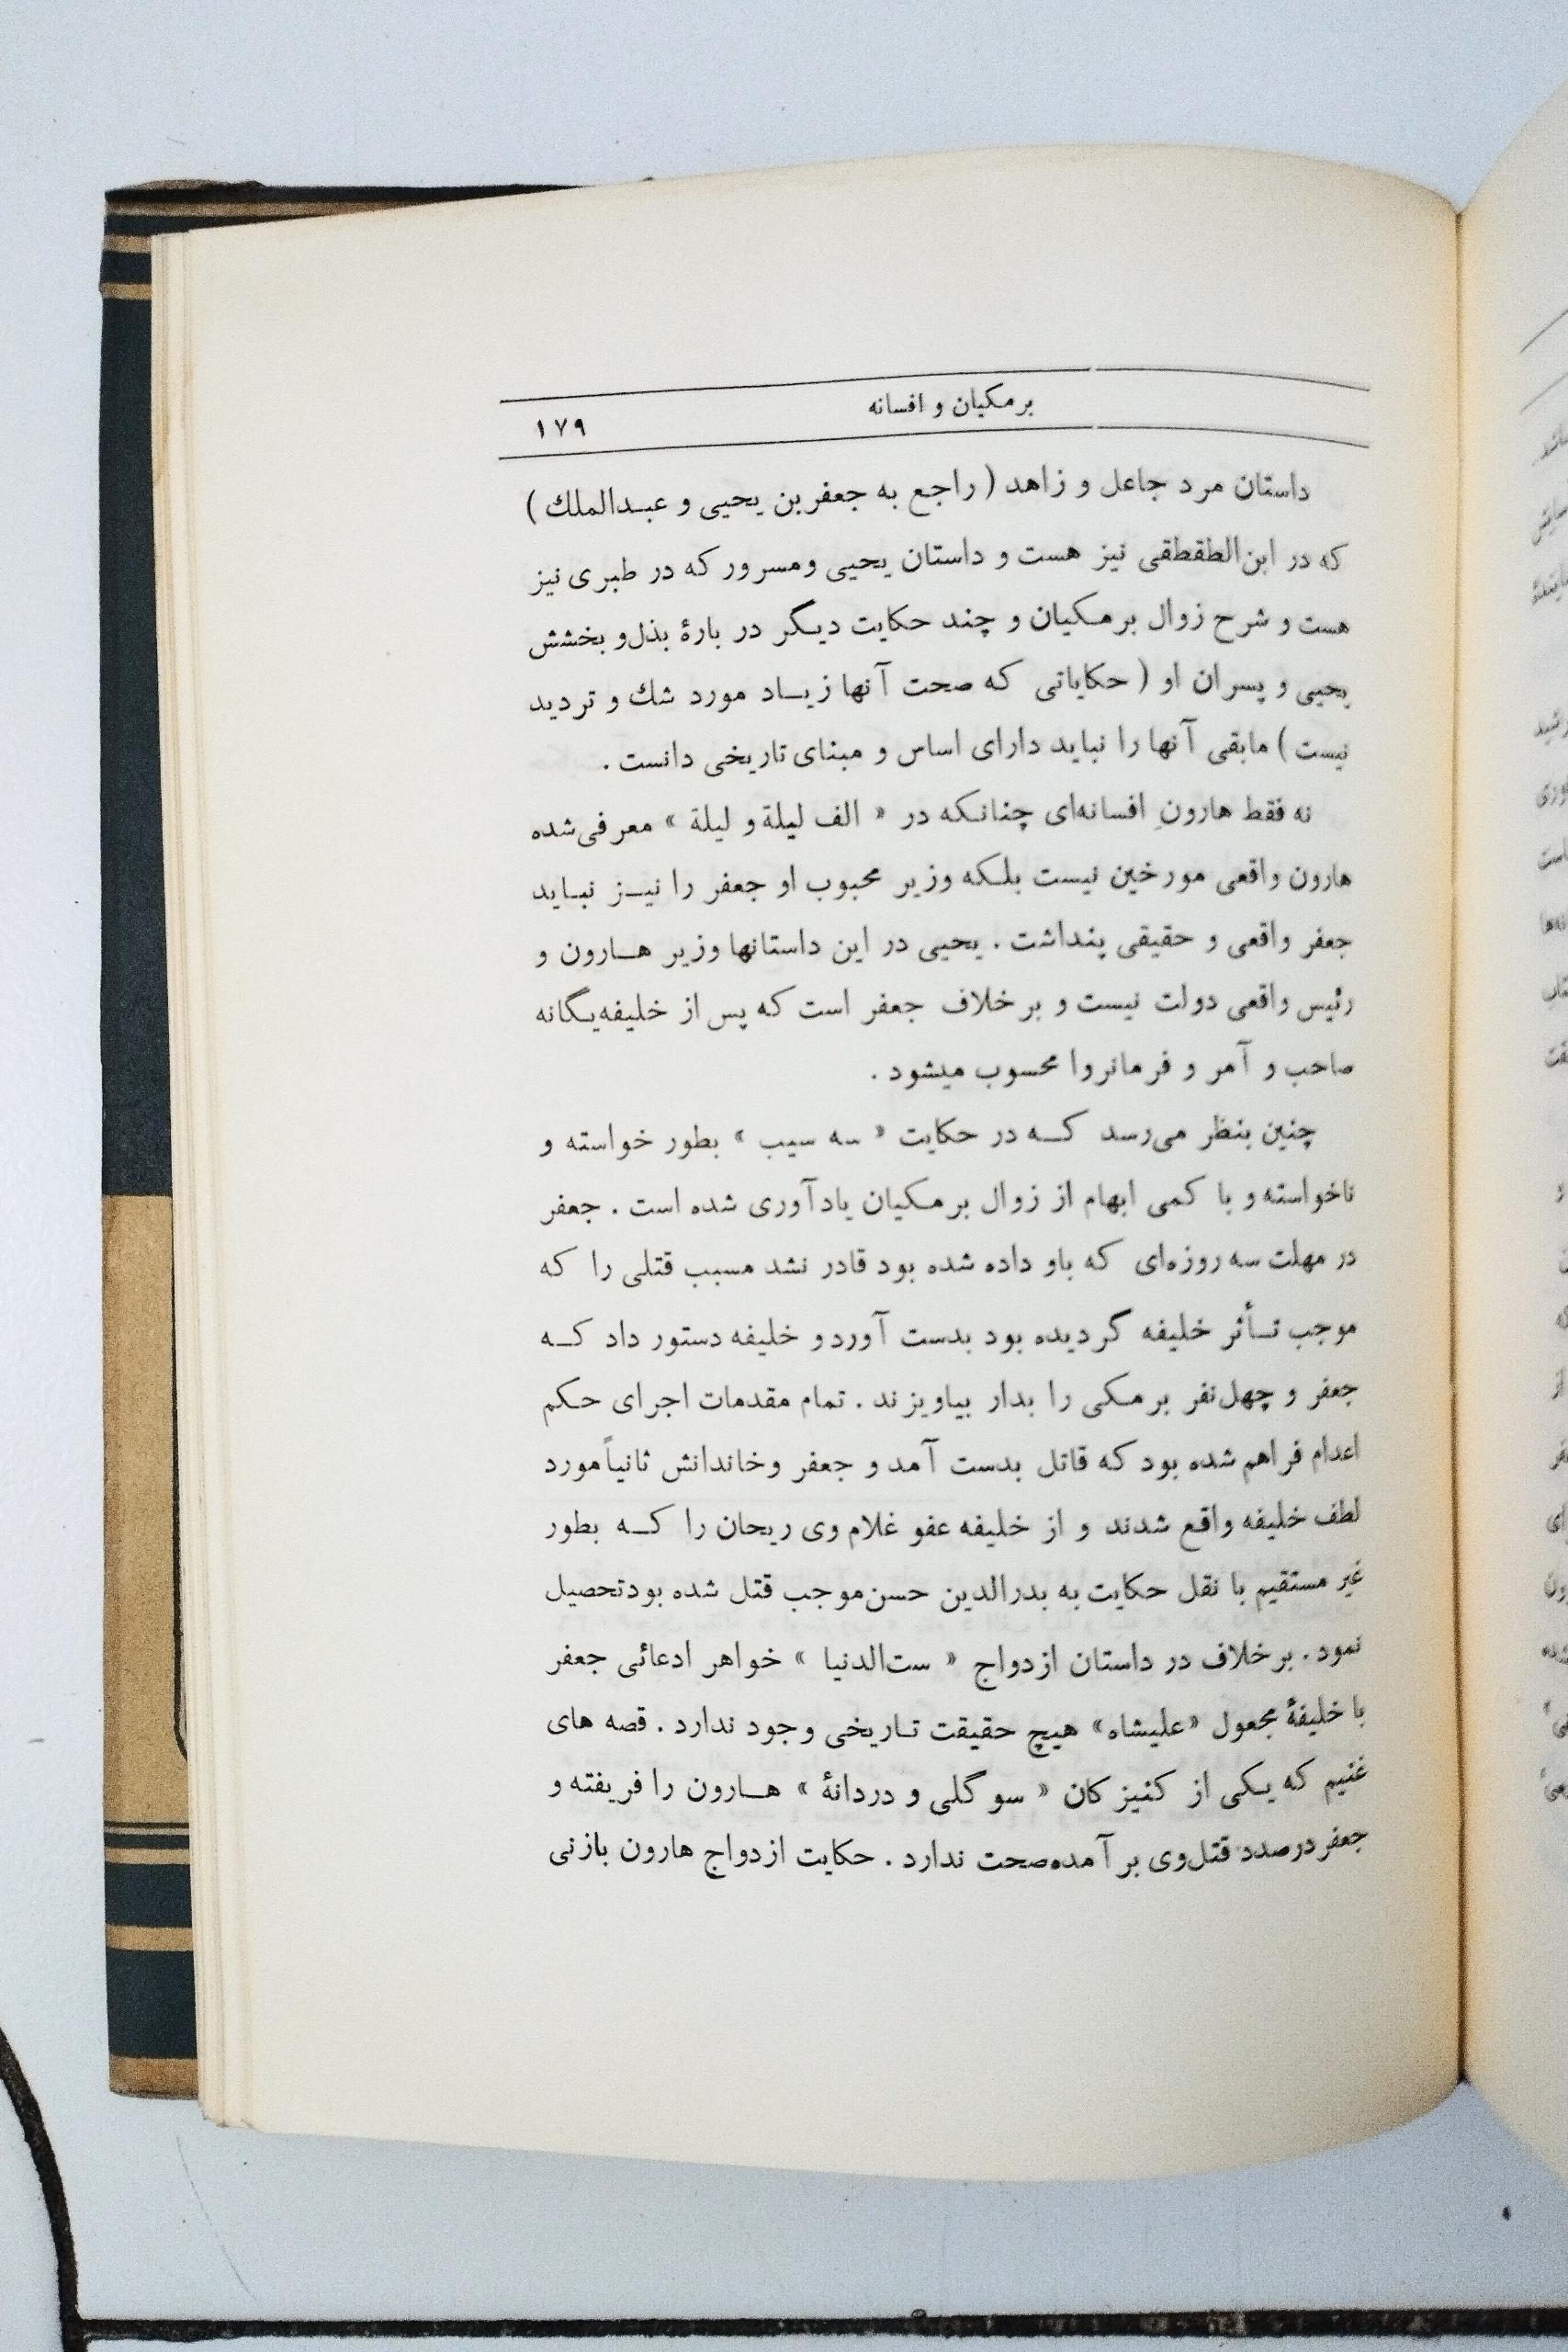 برمکیان و افسانه
۱۷۹
داستان مرد جاعل و زاهد ( راجع به جعفربن یحیی و عبدالملك )
که در ابن‌الطقطقی نیز هست و داستان یحیی ومسرور که در طبری نیز
هست و شرح زوال برمکیان و چند حکایت دیگر در بارۀ بذل‌و بخشش
یحیی و پسران او ( حکایاتی که صحت آنها زیاد مورد شك و تردید
نیست ) مابقی آنها را نباید دارای اساس و مبنای تاریخی دانست .
نه فقط هارونِ افسانه‌ای چنانکه در « الف لیلة و لیلة » معرفی‌شده
هارون واقعی مورخین نیست بلکه وزیر محبوب او جعفر را نیز نباید
جعفر واقعی و حقیقی پنداشت . یحیی در این داستانها وزیر هارون و
رئیس واقعی دولت نیست و برخلاف جعفر است که پس از خلیفه‌یگانه
صاحب و آمر و فرمانروا محسوب میشود .
چنین بنظر می‌رسد که در حکایت « سه سیب » بطور خواسته و
ناخواسته و با کمی ابهام از زوال برمکیان یادآوری شده است . جعفر
در مهلت سه روزه‌ای که باو داده شده بود قادر نشد مسبب قتلی را که
موجب تأثر خلیفه گردیده بود بدست آورد و خلیفه دستور داد که
جعفر و چهل‌نفر برمکی را بدار بیاویزند . تمام مقدمات اجرای حکم
اعدام فراهم شده بود که قاتل بدست آمد و جعفر وخاندانش ثانیاً مورد
لطف خلیفه واقع شدند و از خلیفه عفو غلام وی ریحان را که بطور
غیر مستقیم با نقل حکایت به بدرالدین حسن‌موجب قتل شده بودتحصیل
نمود . برخلاف در داستان ازدواج « ست‌الدنیا » خواهر ادعائی جعفر
با خلیفۀ مجعول «علیشاه» هیچ حقیقت تاریخی وجود ندارد . قصه های
غنیم که یکی از کنیزکان « سوگلی و دردانۀ » هارون را فریفته و
جعفر درصدد قتل‌وی بر آمده‌صحت ندارد . حکایت ازدواج هارون بازنی